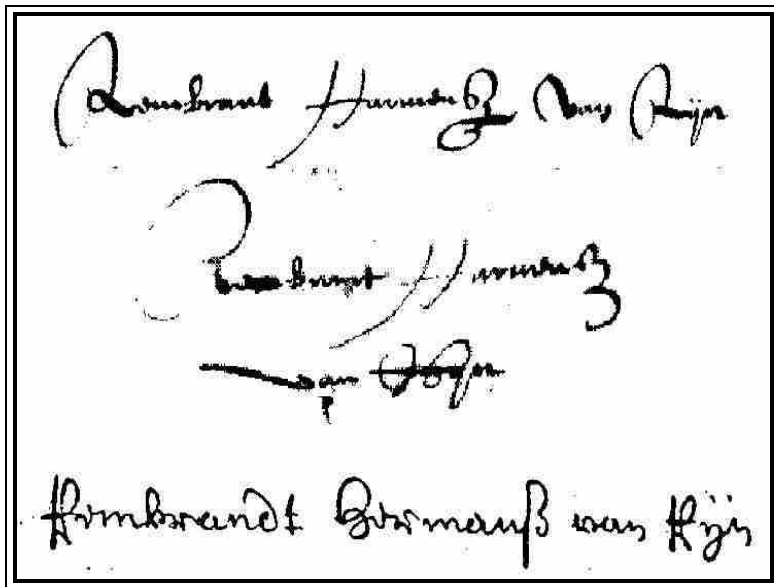 Rembrant Harmensz Van Rijn
Rembrant Harmensz
van Rijn
Rembrandt Hermanß van Rÿn